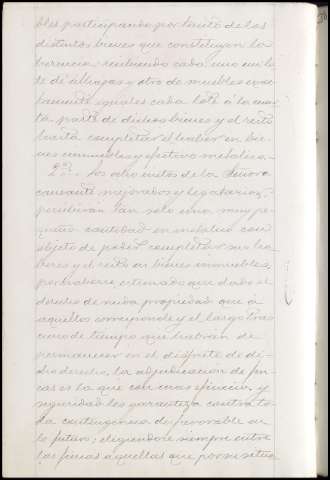 bles participando por tanto de los
distintos bienes que constituyen la
herencia, recibiendo cada uno un lo-
te de alhajas y otro de muebles exac-
tamente iguales cada lote á la cuar-
ta parte de dichos bienes y el resto
hasta completar el haber en bie-
nes inmuebles y efectivo metálico.
2ª. Los otros nietos de la Señora
causante mejorados y legatarios,
percibirán tan solo una muy pe-
queña cantidad en metálico con
objeto de poder completar sus ha-
beres y el resto en bienes inmuebles,
por haberse estimado que dado el
derecho de nuda propiedad que á
aquellos corresponde y el largo trans-
curso de tiempo que habrán de
permanecer en el disfrute de di-
cho derecho, la adjudicación de fin-
cas es la que con mas eficacia y
seguridad les garantiza contra to-
da contingencia desfavorable en
lo futuro; eligiendose siempre entre
las fincas aquellas que por su situa-